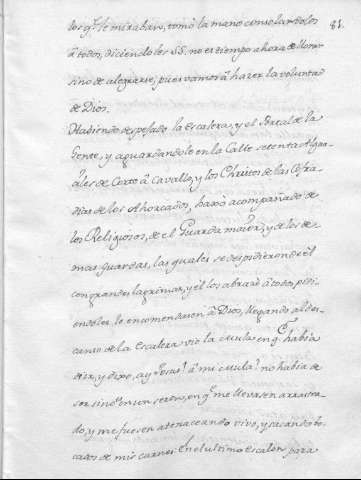 los q.e le miraban, tomó la mano consolandolos
81.
à todos, diciendoles SS. no es tiempo ahora de llorar
sino de alegrarse, pues vamos à hazer la voluntad
de Dios.
Habiendo despejado la Escalera, y el Portal de la
Gente, y aguardandole en la Calle setenta Algua-
ziles de Corte à Cavallo, y los Christos de las Cofra-
dias de los Ahorcados, baxò acompañado de
los Religiosos, de el Guarda mayor, y de los de-
mas Guardas, las quales se despidieron de el
con grandes lagrimas, y él los abrazò à todos pidi-
endoles le encomendasen à Dios, llegando al des-
canso de la Escalera vio la mula en q.e habia
de ir, y dixo, ay Jesus! à mi mula? no habia de
ser sino en un seron, en q.e me llevasen arrastra-
do, y me fuesen atenaceando vivo, y sacando bo-
cados de mis carnes. En el ultimo Escalon, para